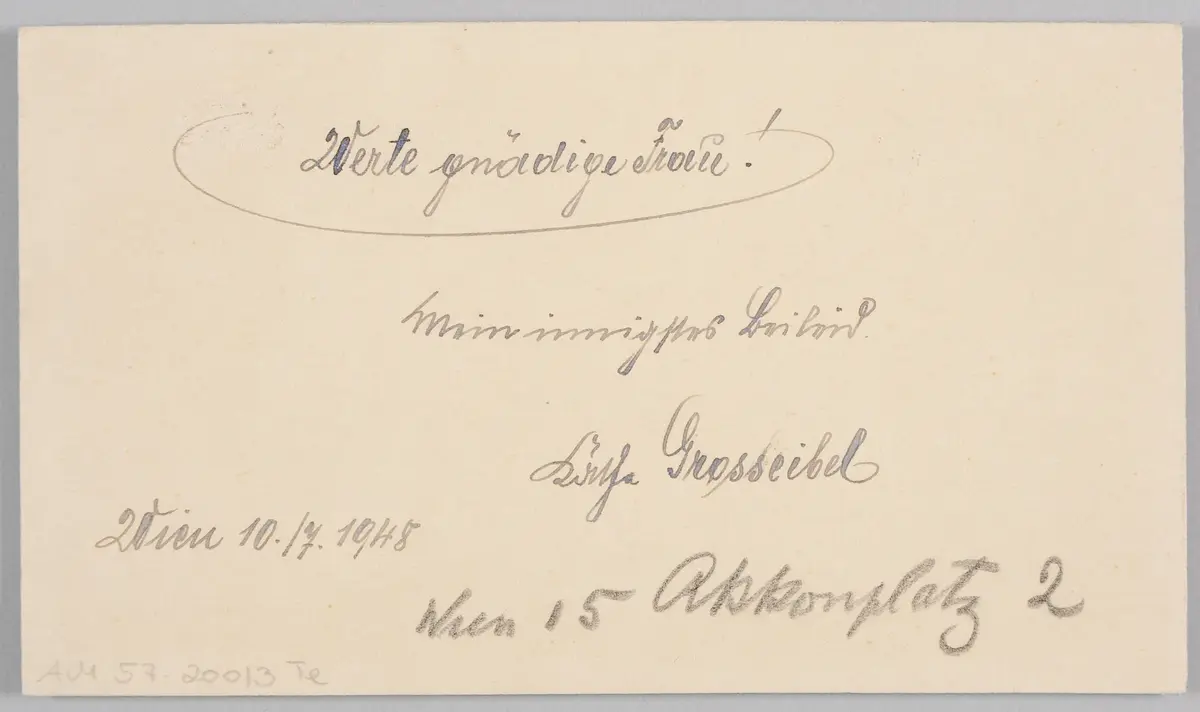 Werte gnädige Frau!
Mein innigstes Beileid.
Käthe Grosseibel
Wien 10./7. 1948
Wien 15 Akkonplatz 2
57-20013 Te